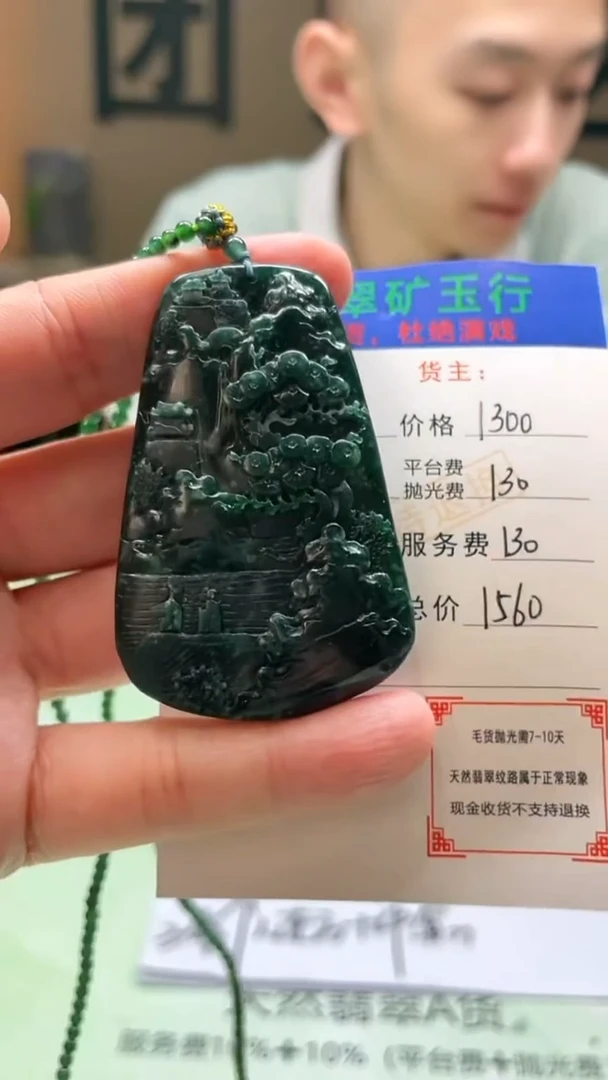 团
翠矿玉行
，杜绝演戏
货主：
价格 1300
平台费
抛光费 130
服务费 130
总价 1560
毛货抛光需7-10天
天然翡翠纹路属于正常现象
现金收货不支持退换
天然翡翠A货
服务费10%+10%（平台费+抛光费